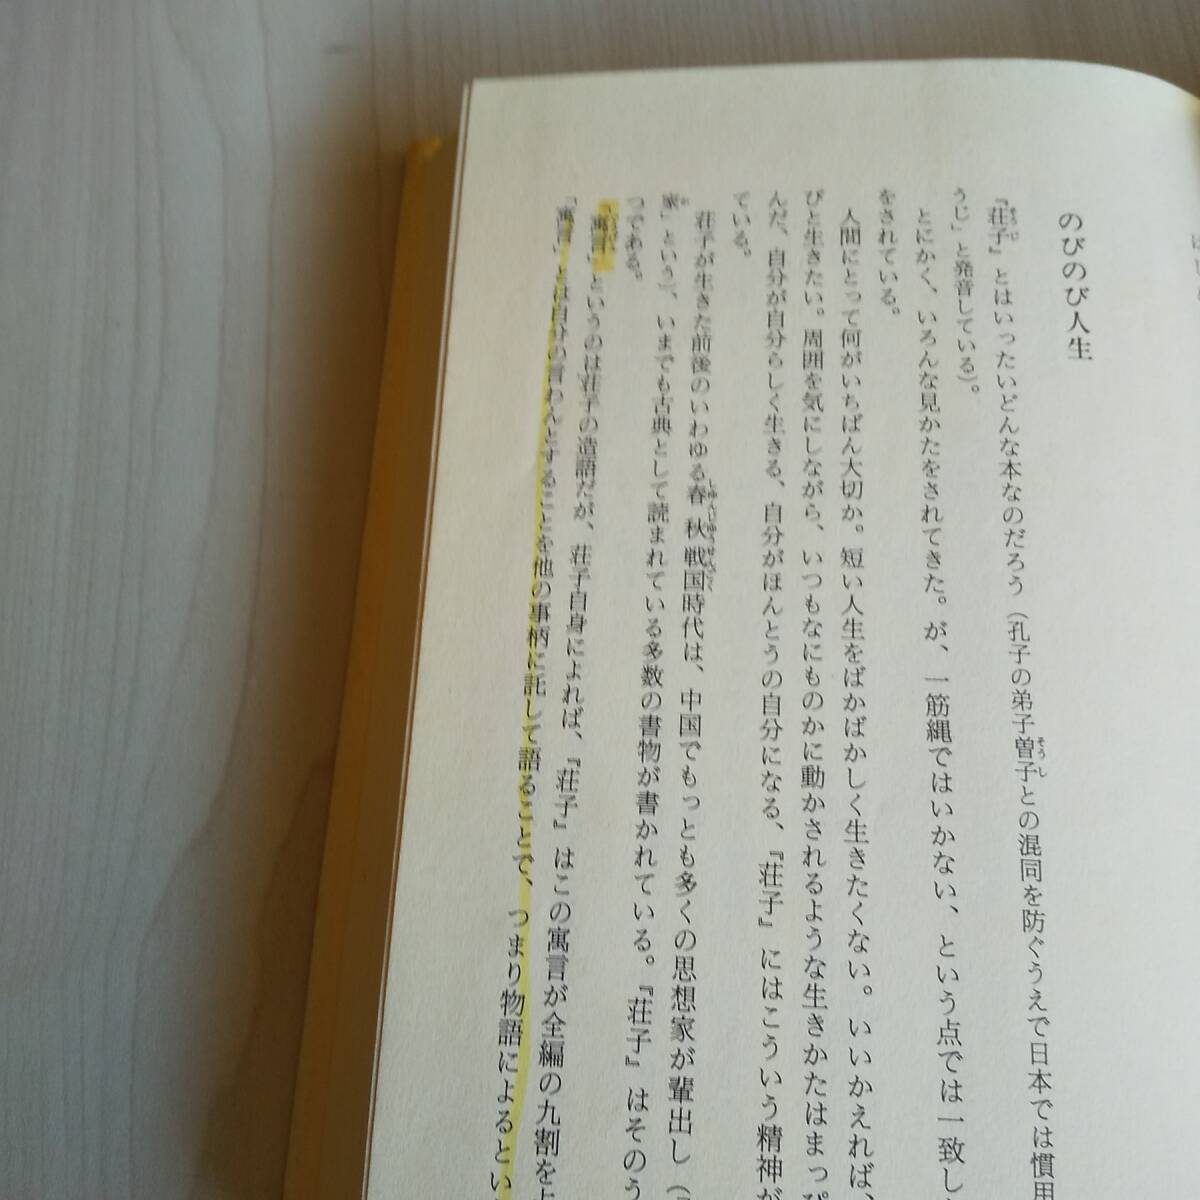 のびのび人生
『荘子』とはいったいどんな本なのだろう（孔子の弟子曽子との混同を防ぐうえで日本では慣用
うじ」と発音している）。
とにかく、いろんな見かたをされてきた。が、一筋縄ではいかない、という点では一致し
をされている。
人間にとって何がいちばん大切か。短い人生をばかばかしく生きたくない。いいかえれば、
びと生きたい。周囲を気にしながら、いつもなにものかに動かされるような生きかたはまっぴ
んだ、自分が自分らしく生きる、自分がほんとうの自分になる、『荘子』にはこういう精神が
ている。
荘子が生きた前後のいわゆる春秋戦国時代は、中国でもっとも多くの思想家が輩出し（
家」という）、いまでも古典として読まれている多数の書物が書かれている。『荘子』はそのう
つである。
「寓言」というのは荘子の造語だが、荘子自身によれば、『荘子』はこの寓言が全編の九割を
「寓言」とは自分の言わんとすることを他の事柄に託して語ることで、つまり物語によるとい